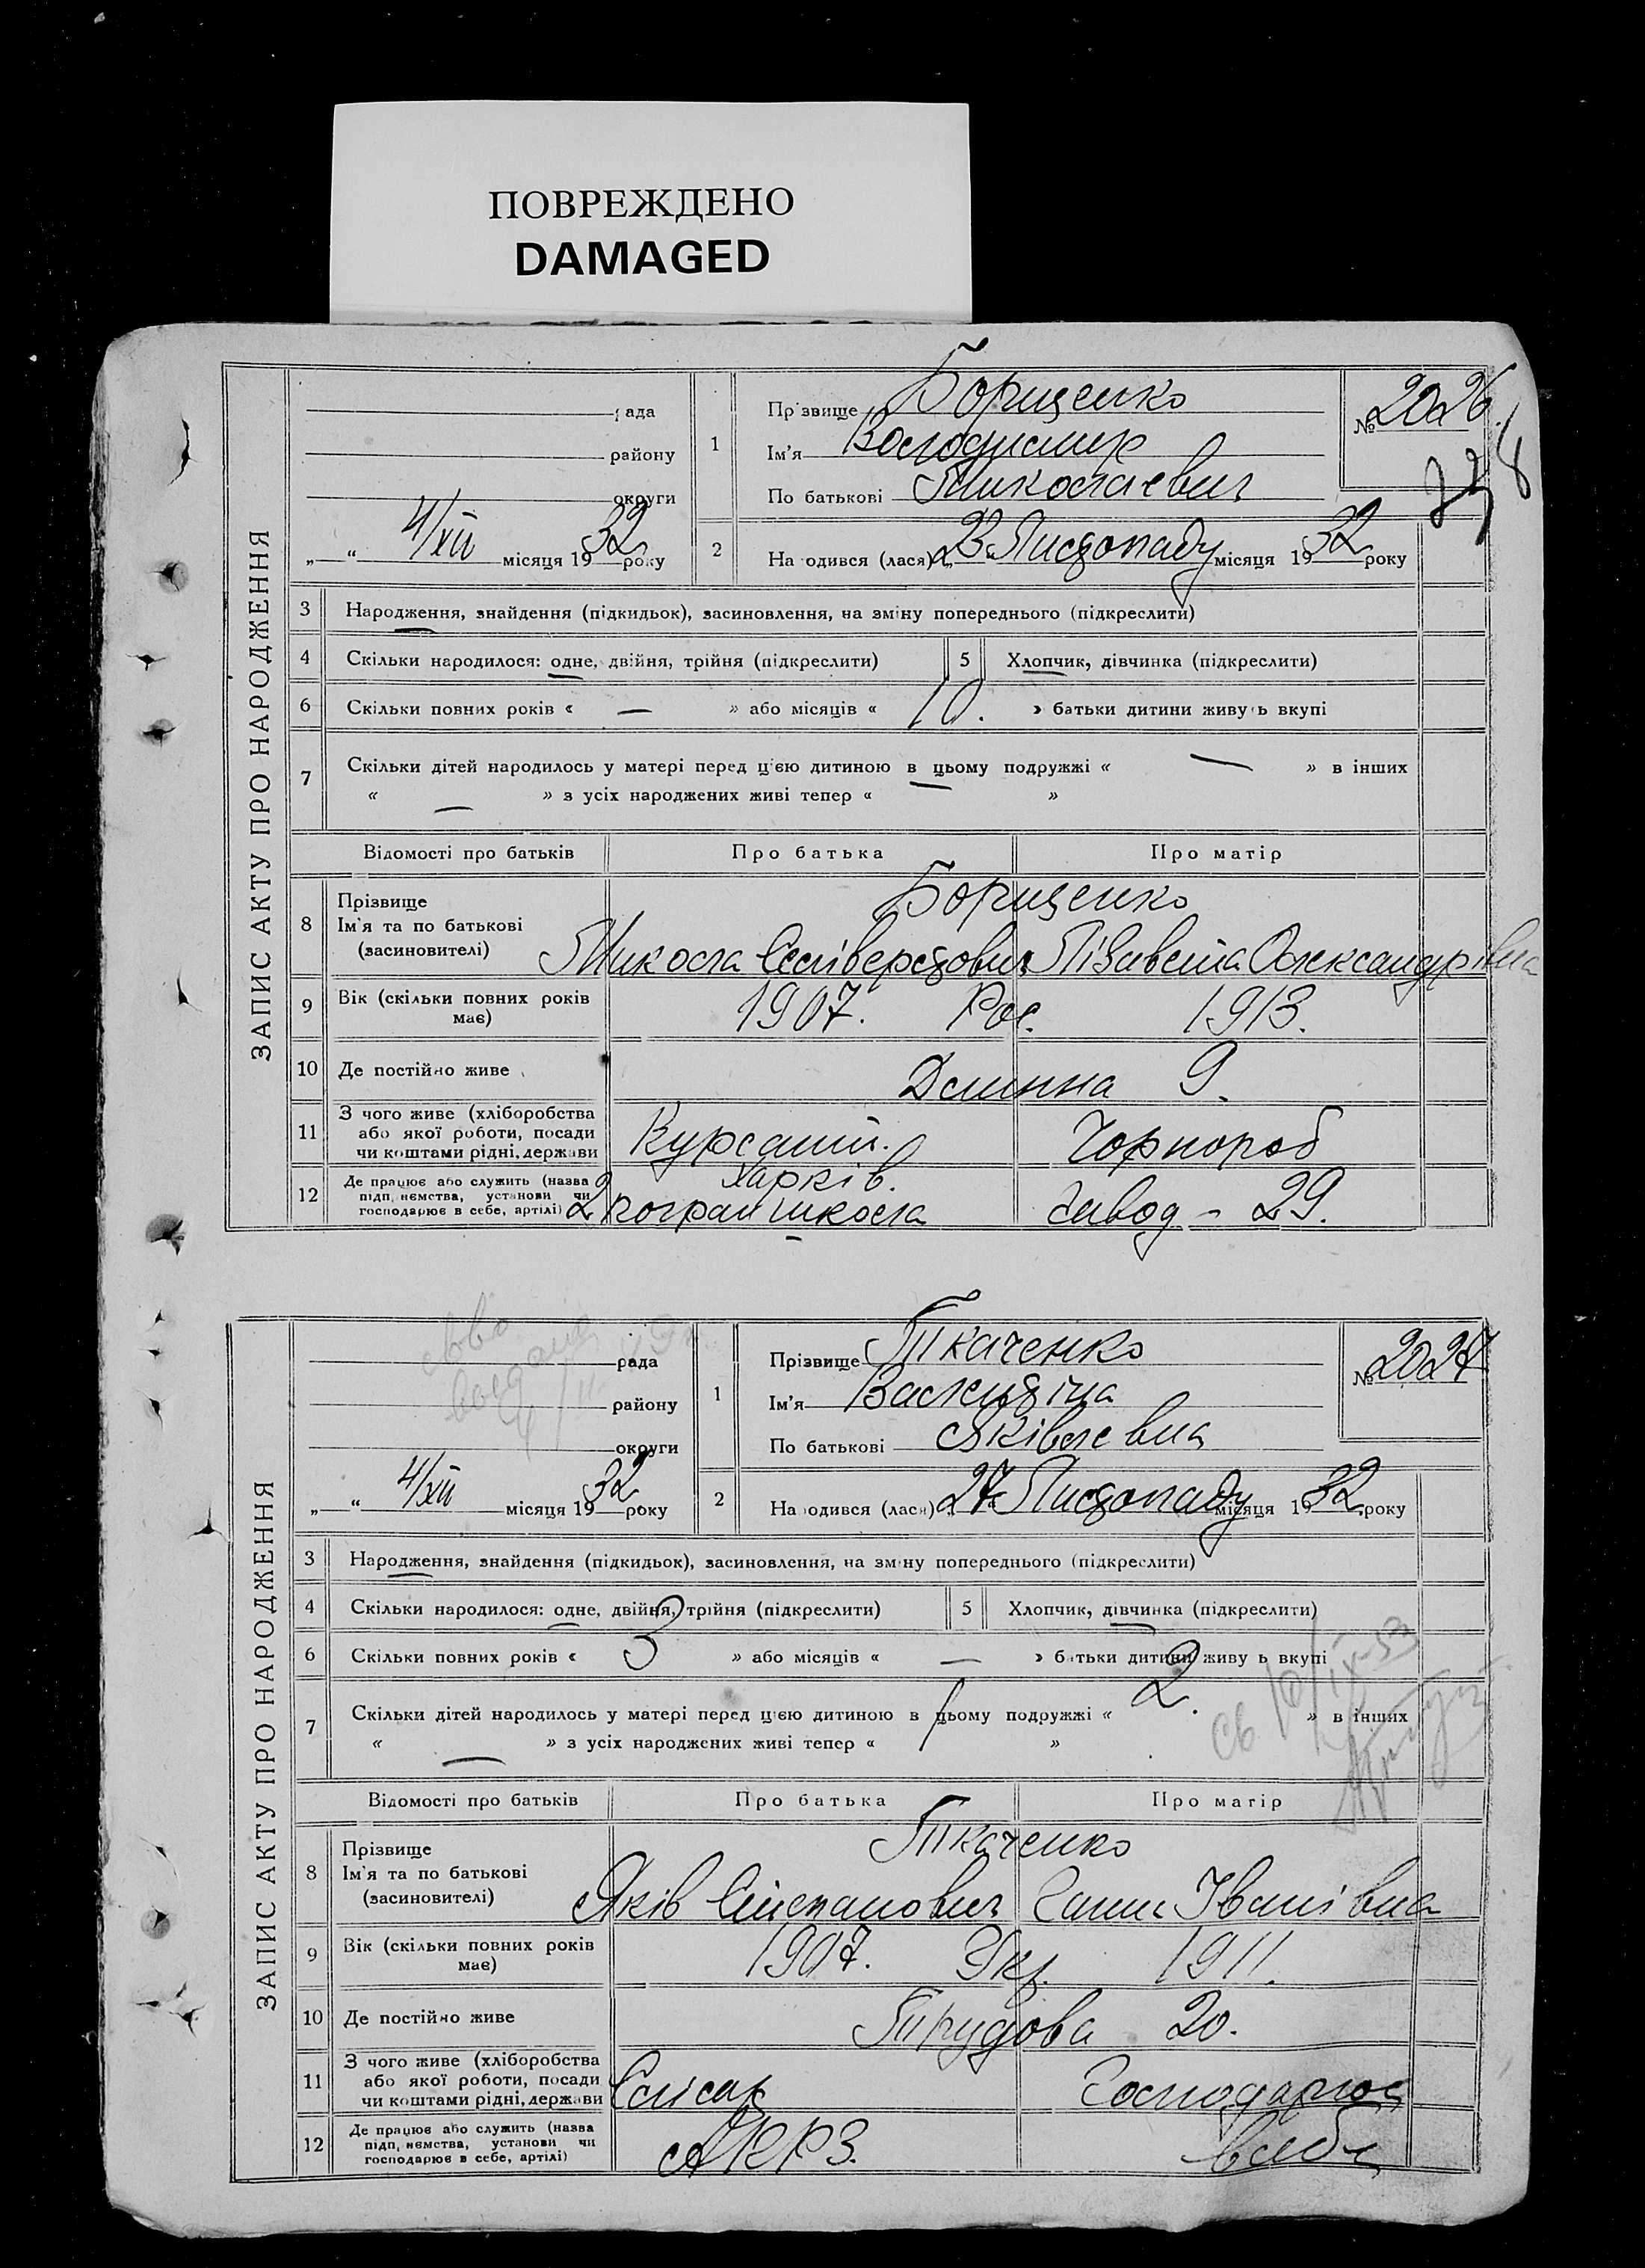 ПОВРЕЖДЕНО
DAMAGED
ЗАПИС АКТУ ПРО НАРОДЖЕННЯ
рада
району
округи
„ “ 4/XII місяця 1932 року
1
Прізвище Борщенко
Ім'я Володимир
По батькові Миколаєвич
№ 2026.
2
Народився (лася) „23“ Листопаду місяця 1932 року
3 Народження, знайдення (підкидьок), засиновлення, на зміну попереднього (підкреслити)
4 Скільки народилося: одне, двійня, трійня (підкреслити) 5 Хлопчик, дівчинка (підкреслити)
6 Скільки повних років « — » або місяців « 10. » батьки дитини живуть вкупі
7 Скільки дітей народилось у матері перед цією дитиною в цьому подружжі « — » в інших
« — » з усіх народжених живі тепер « — »
Відомості про батьків Про батька Про матір
8 Прізвище Борщенко
Ім'я та по батькові
(засиновителі) Микола Селіверстович Лізавета Олександрівна
9 Вік (скільки повних років має) 1907. Рос. 1913.
10 Де постійно живе Длинна 9.
11 З чого живе (хліборобства
або якої роботи, посади
чи коштами рідні, держави Курсант. Чорнороб
12 Де працює або служить (назва
підприємства, установи чи
господарює в себе, артілі) Харків.
2 погран школа Завод - 29.
ЗАПИС АКТУ ПРО НАРОДЖЕННЯ
рада
району
округи
„ “ 4/XII місяця 1932 року
1
Прізвище Ткаченко
Ім'я Валентіна
По батькові Яківлевна
№ 2027
2
Народився (лася) „27“ Листопаду місяця 1932 року
3 Народження, знайдення (підкидьок), засиновлення, на зміну попереднього (підкреслити)
4 Скільки народилося: одне, двійня, трійня (підкреслити) 5 Хлопчик, дівчинка (підкреслити)
6 Скільки повних років « 3 » або місяців « — » батьки дитини живуть вкупі
7 Скільки дітей народилось у матері перед цією дитиною в цьому подружжі « 2. » в інших
« — » з усіх народжених живі тепер « 1 »
Відомості про батьків Про батька Про матір
8 Прізвище Ткаченко
Ім'я та по батькові
(засиновителі) Яків Степанович Ганна Іванівна
9 Вік (скільки повних років має) 1907. Укр. 1911.
10 Де постійно живе Трудова 20.
11 З чого живе (хліборобства
або якої роботи, посади
чи коштами рідні, держави Слісар Господарює
12 Де працює або служить (назва
підприємства, установи чи
господарює в себе, артілі) вдома